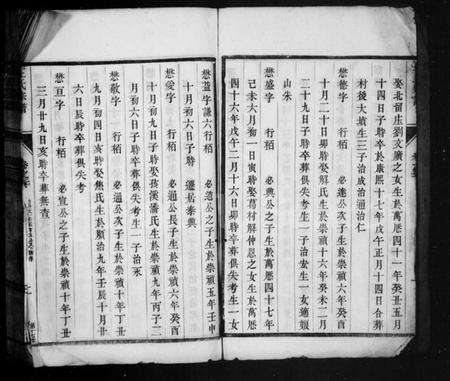 娶北留庄劉文廣之女生於萬曆四十一年癸丑五月
十四日子時卒於康熙十七年戊午正月十四日合葬
村後大墳生三子治成治通治仁
懋德字 行栢 必進公次子生於萬曆
十月二十日卯時娶解氏生於崇禎十六年癸未二月
十九日子時卒葬俱失考生一子治宏生一女適
山朱
懋盛字 行栢 必興公之子生於萬曆四十七年
己未六月初一日寅時娶葛村解仲恩之女生於萬曆
四十六年戊午二月十六日卯時卒葬俱失考生一女
懋益字謙六行栢 必通公之子生於崇禎五年壬申
十月初六日子時 遷居泰興
懋愛字 行栢 必通公長子生於崇禎六年癸酉
十月初九日子時娶孩溪潘氏生於崇禎九年丙子二
月初六日子時卒葬俱失考生一子治永
懋敬字 行栢 必通公次子生於崇禎十年丁丑
九月初四日亥時娶熊氏生於順治九年壬辰十月廿
六日辰時卒葬俱失考
懋亘字 行栢 必宣公之子生於崇禎十年丁丑
三月廿九日亥時卒葬無查